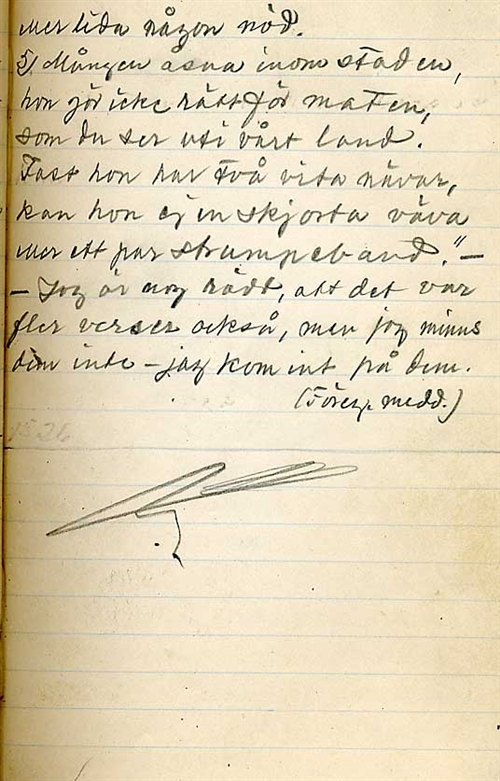 mer lida någon nöd.
5) Mången äsna inom staden,
hon gör icke rätt för maten,
som du ser uti vårt land.
Fast hon har två vita nävar,
kan hon ej en skjorta väva
mer ett par strumpeband."—
— Jag är nog rädd, att det var
fler verser också, men jag minns
dem inte — jag kom int på dem.
(Föreg. medd.)